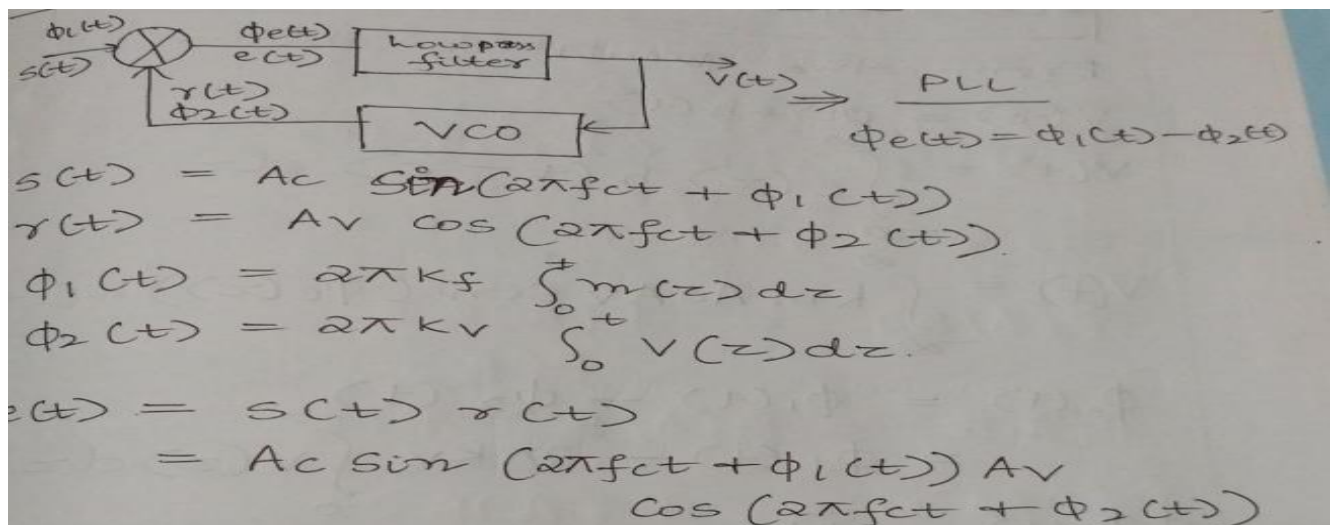 ϕ1(t)
s(t)
ϕe(t)
e(t)
Lowpass
filter
V(t)
⇒ PLL
r(t)
ϕ2(t)
VCO
ϕe(t) = ϕ1(t) - ϕ2(t)
s(t) = Ac Sin(2πfct + ϕ1(t))
r(t) = Av cos(2πfct + ϕ2(t)).
ϕ1(t) = 2πKf ∫0^t m(z)dz
ϕ2(t) = 2πKv ∫0^t V(z)dz.
e(t) = s(t) r(t)
= Ac Sin (2πfct + ϕ1(t)) Av
cos (2πfct + ϕ2(t))